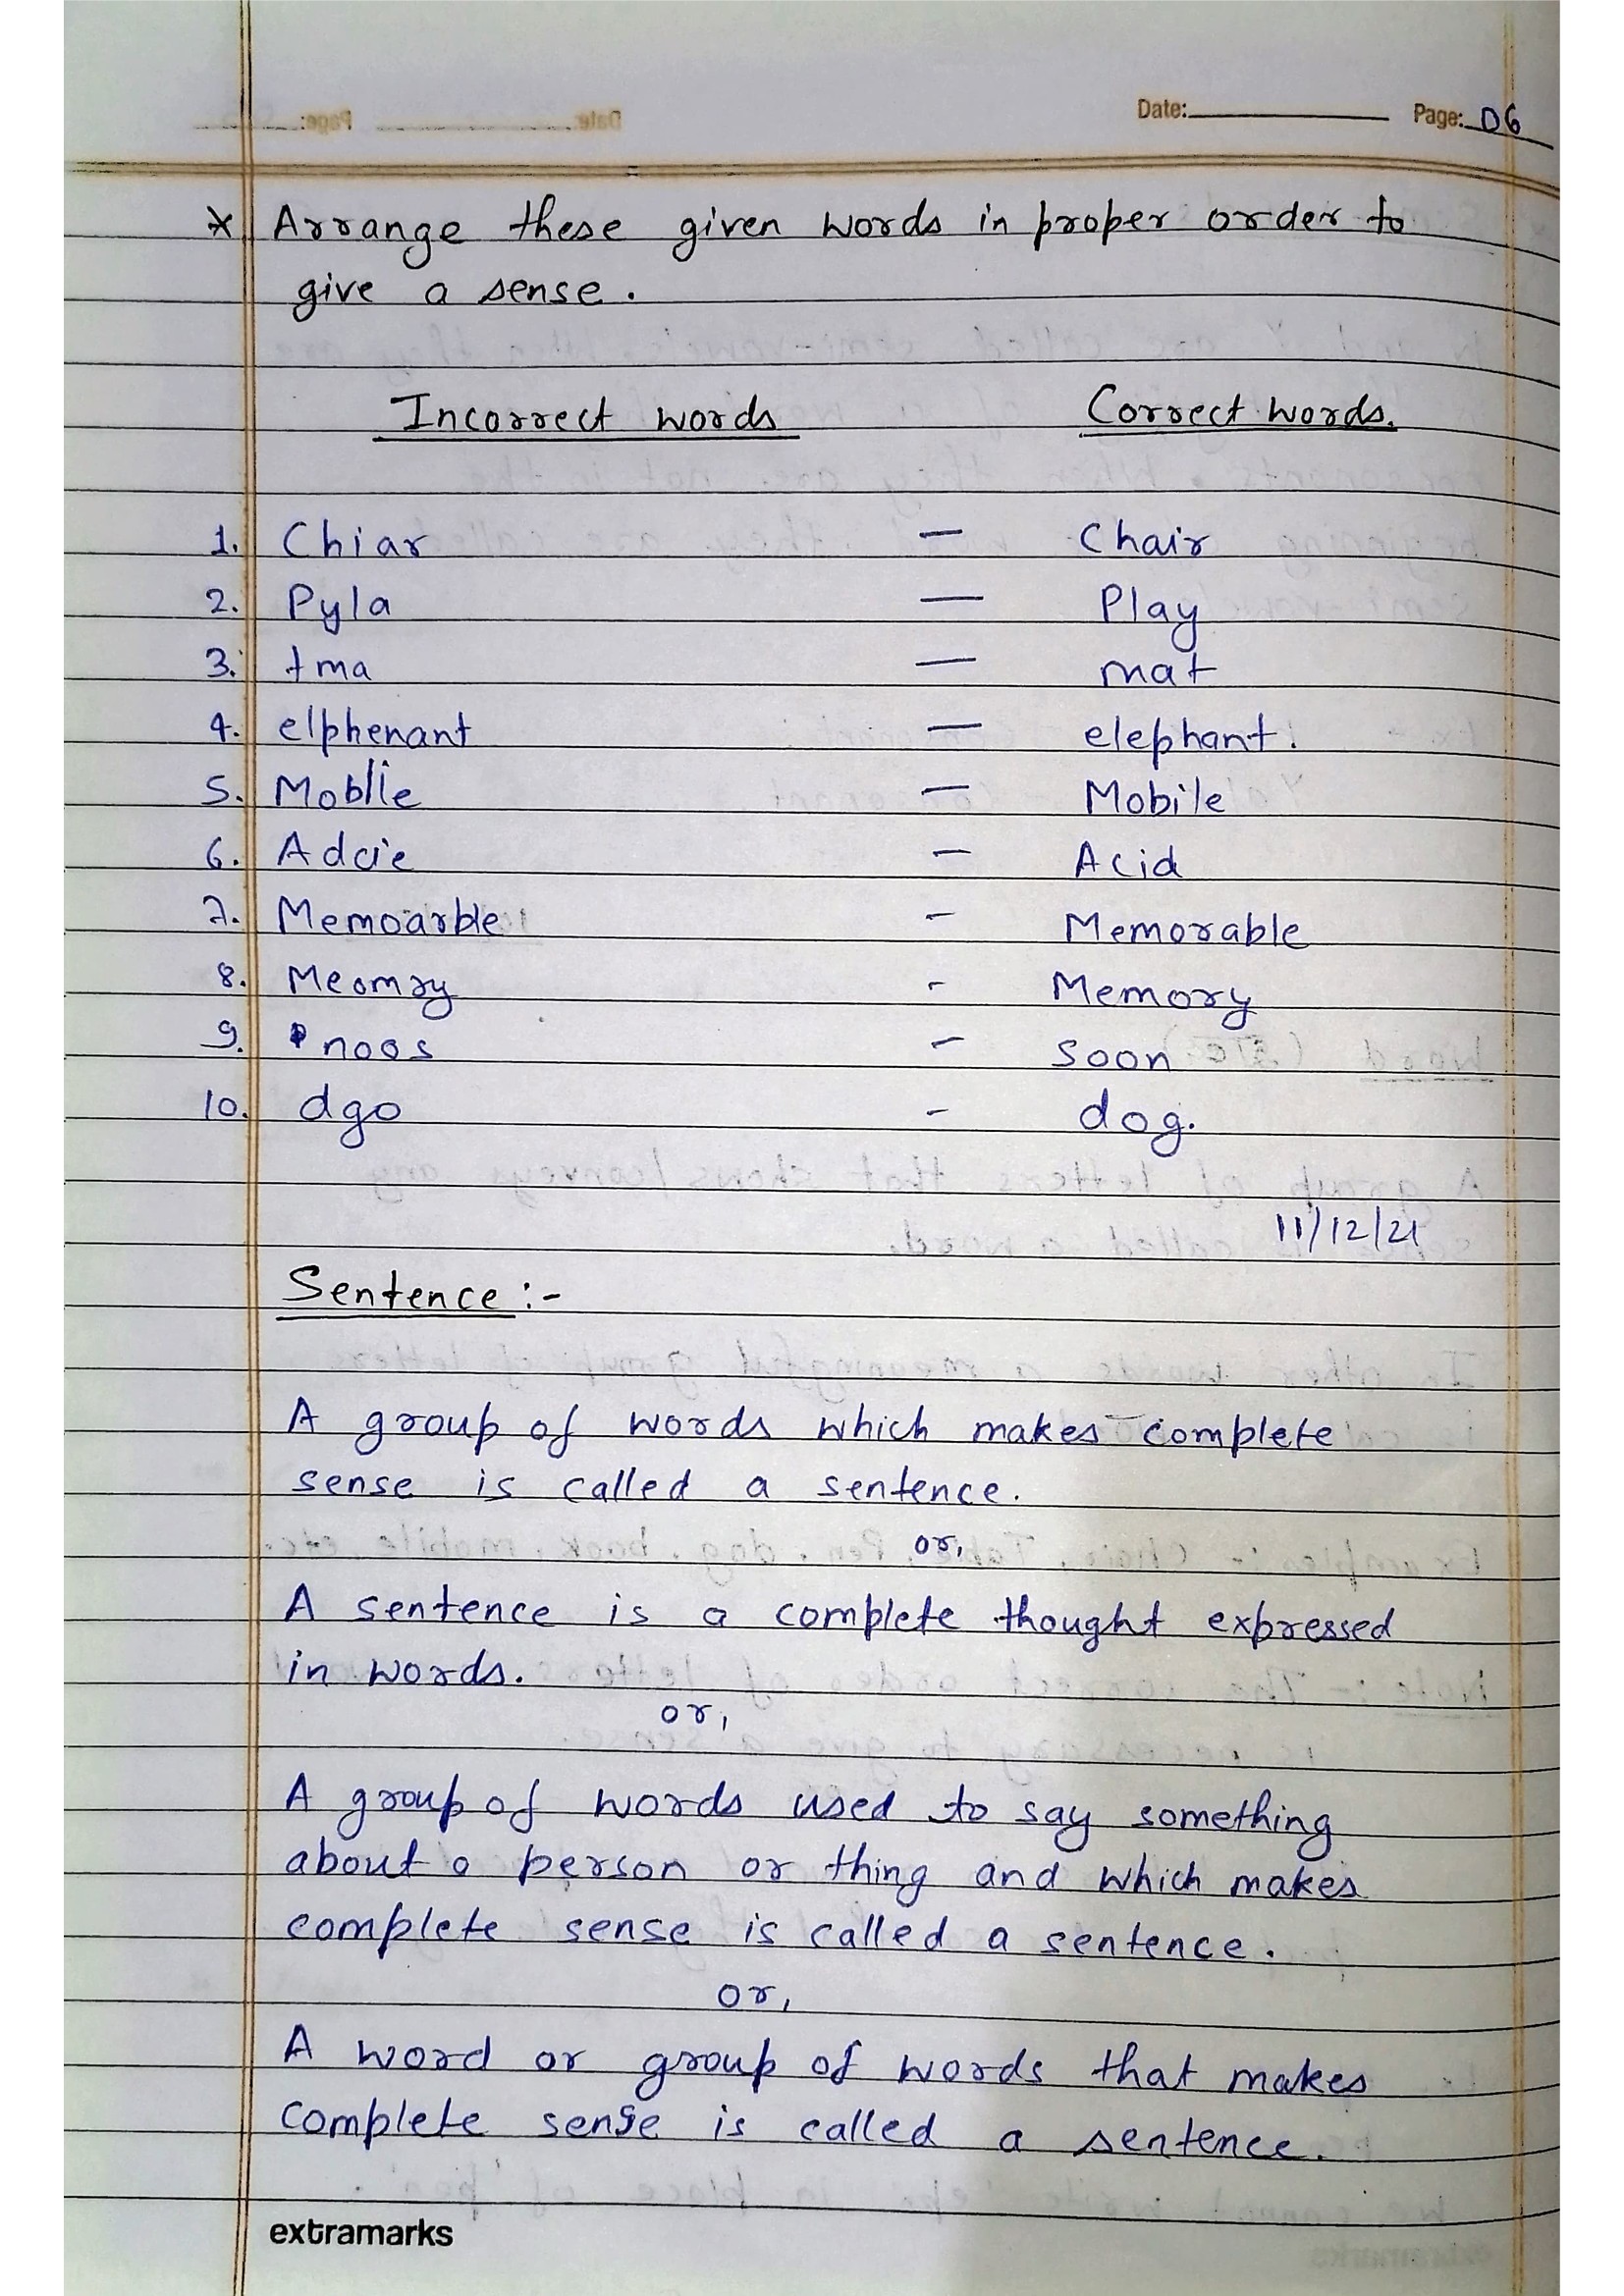 Date: Page: 06
* Arrange these given words in proper order to
give a sense.
Incorrect words Correct words.
1. Chiar — Chair
2. Pyla — Play
3. tma — mat
4. elphenant — elephant.
5. Moblie — Mobile
6. Adcie — Acid
7. Memoarble - Memorable
8. Meomry - Memory
9. noos - soon
10. dgo - dog.
11/12/21
Sentence :-
A group of words which makes complete
sense is called a sentence.
or,
A sentence is a complete thought expressed
in words.
or,
A group of words used to say something
about a person or thing and which makes
complete sense is called a sentence.
or,
A word or group of words that makes
complete sense is called a sentence.
extramarks